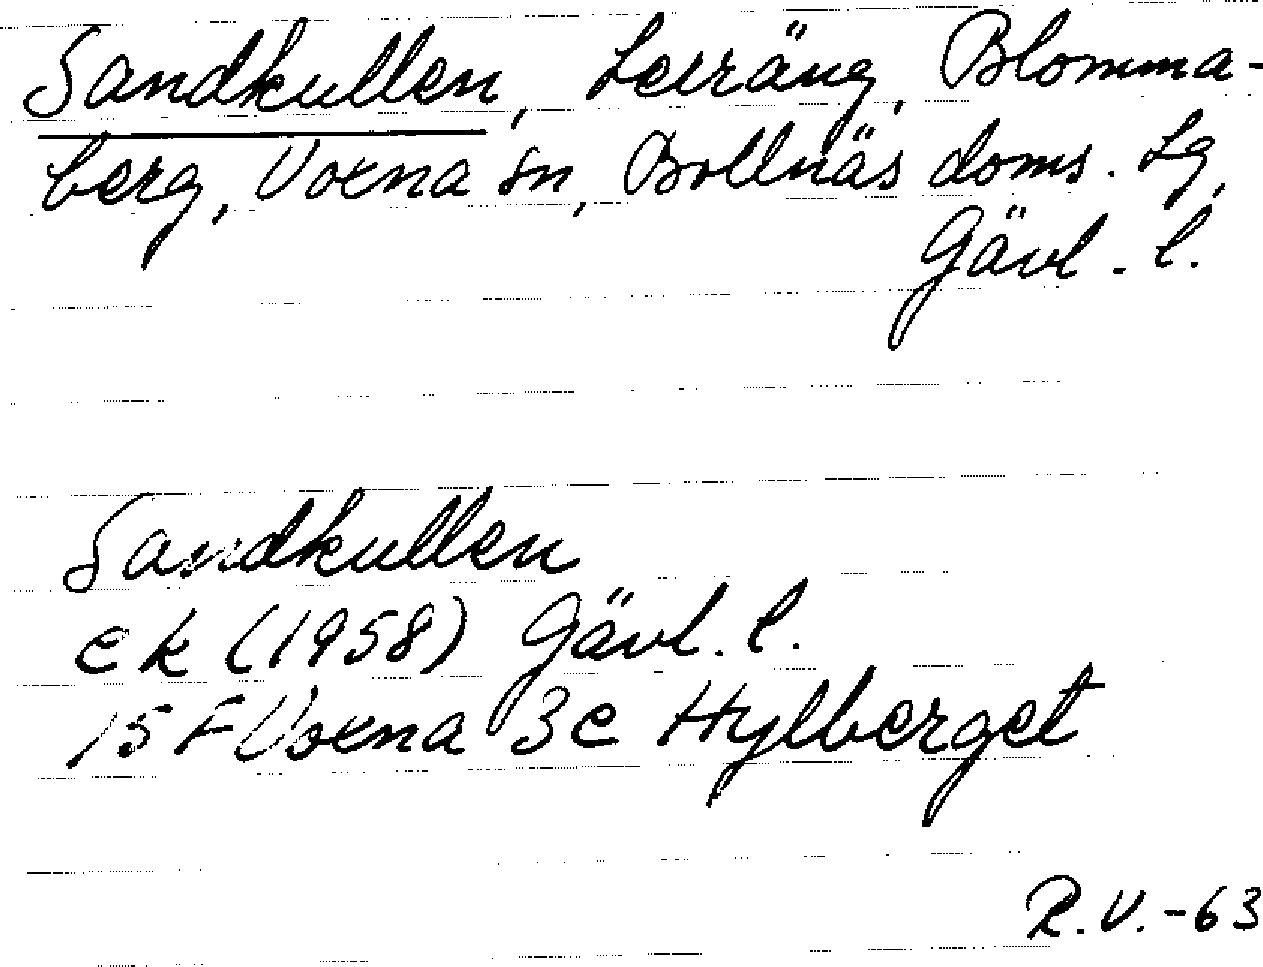 Sandkullen, Lerräng, Blomma-
berg, Voxna sn, Bollnäs doms. lg,
Gävl. l.
Sandkullen
ek (1958) Gävl. l.
15 F Voxna 3c Hylberget
R.V.-63